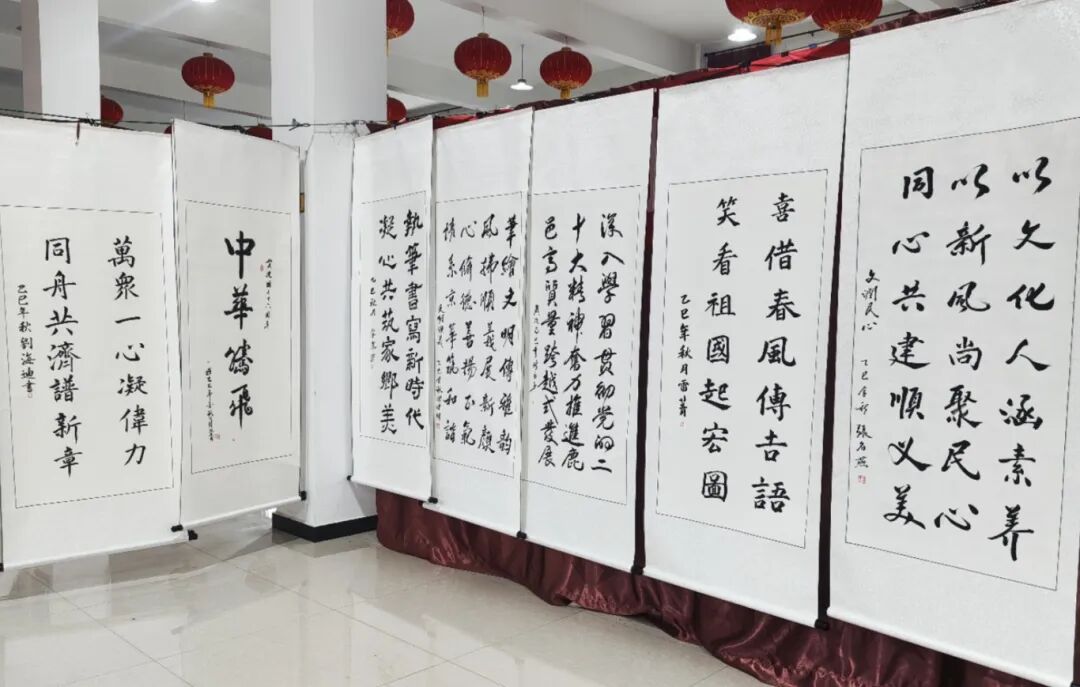 萬衆一心凝偉力
同舟共濟譜新章
乙巳年秋劉海迪書
中華騰飛
執筆書寫新時代
凝心共筑家鄉美
乙巳秋月
華繪文明傳雅韵
風拂順義展新顏
心脩德善揚正氣
情系京華筑和諧
深入學習貫彻党的二
十大精神奮力推進鹿
邑高質量跨越式發展
喜借春風傳吉語
笑看祖國起宏圖
乙巳年秋月雷菁
以文化人涵素养
以新風尚聚民心
同心共建順义美
文潤民心 乙巳年秋 張